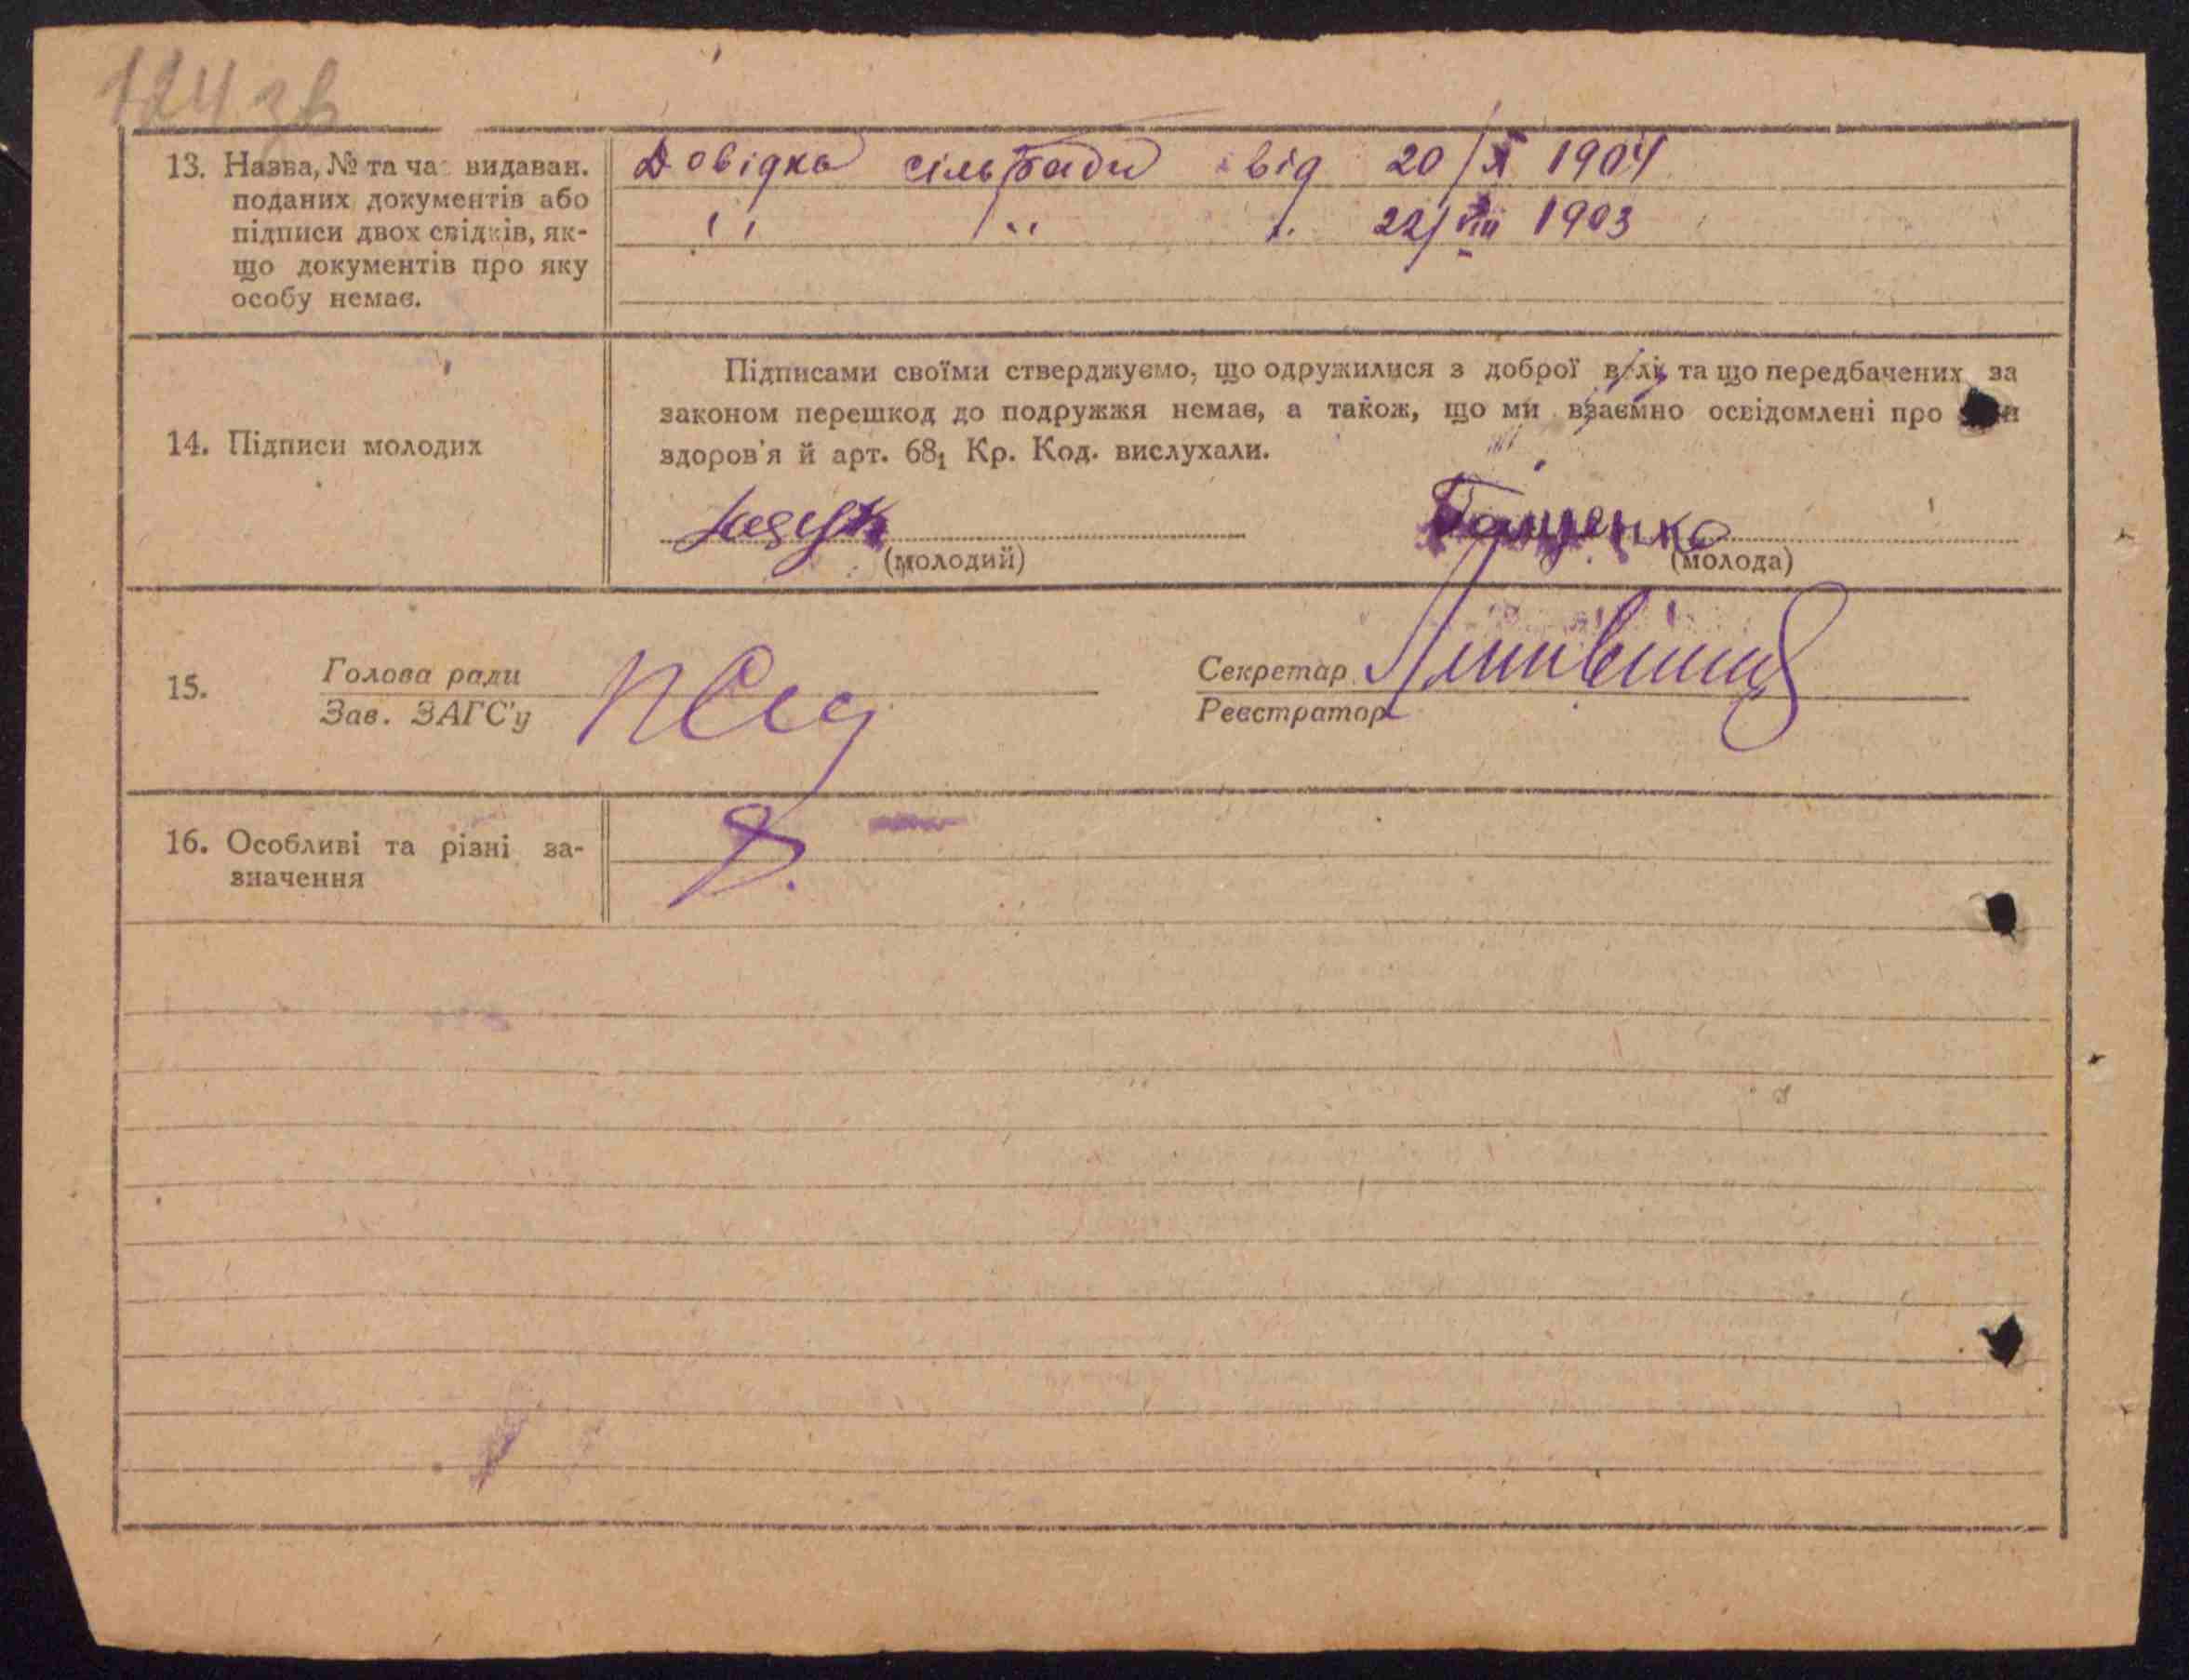 124 зв
13. Назва, № та час видаван. поданих документів або підписи двох свідків, як- що документів про яку особу немає.
Довідка сільради від 20/X 1904
" " " 22/VIII 1903
14. Підписи молодих
Підписами своїми стверджуємо, що одружилися з доброї волі та що передбачених за
законом перешкод до подружжя немає, а також, що ми взаємно освідомлені про
здоров'я й арт. 68₁ Кр. Код. вислухали.
(молодий)
(молода)
15.
Голова ради
Зав. ЗАГС'у
Секретар
Реєстратор
16. Особливі та різні за-
значення